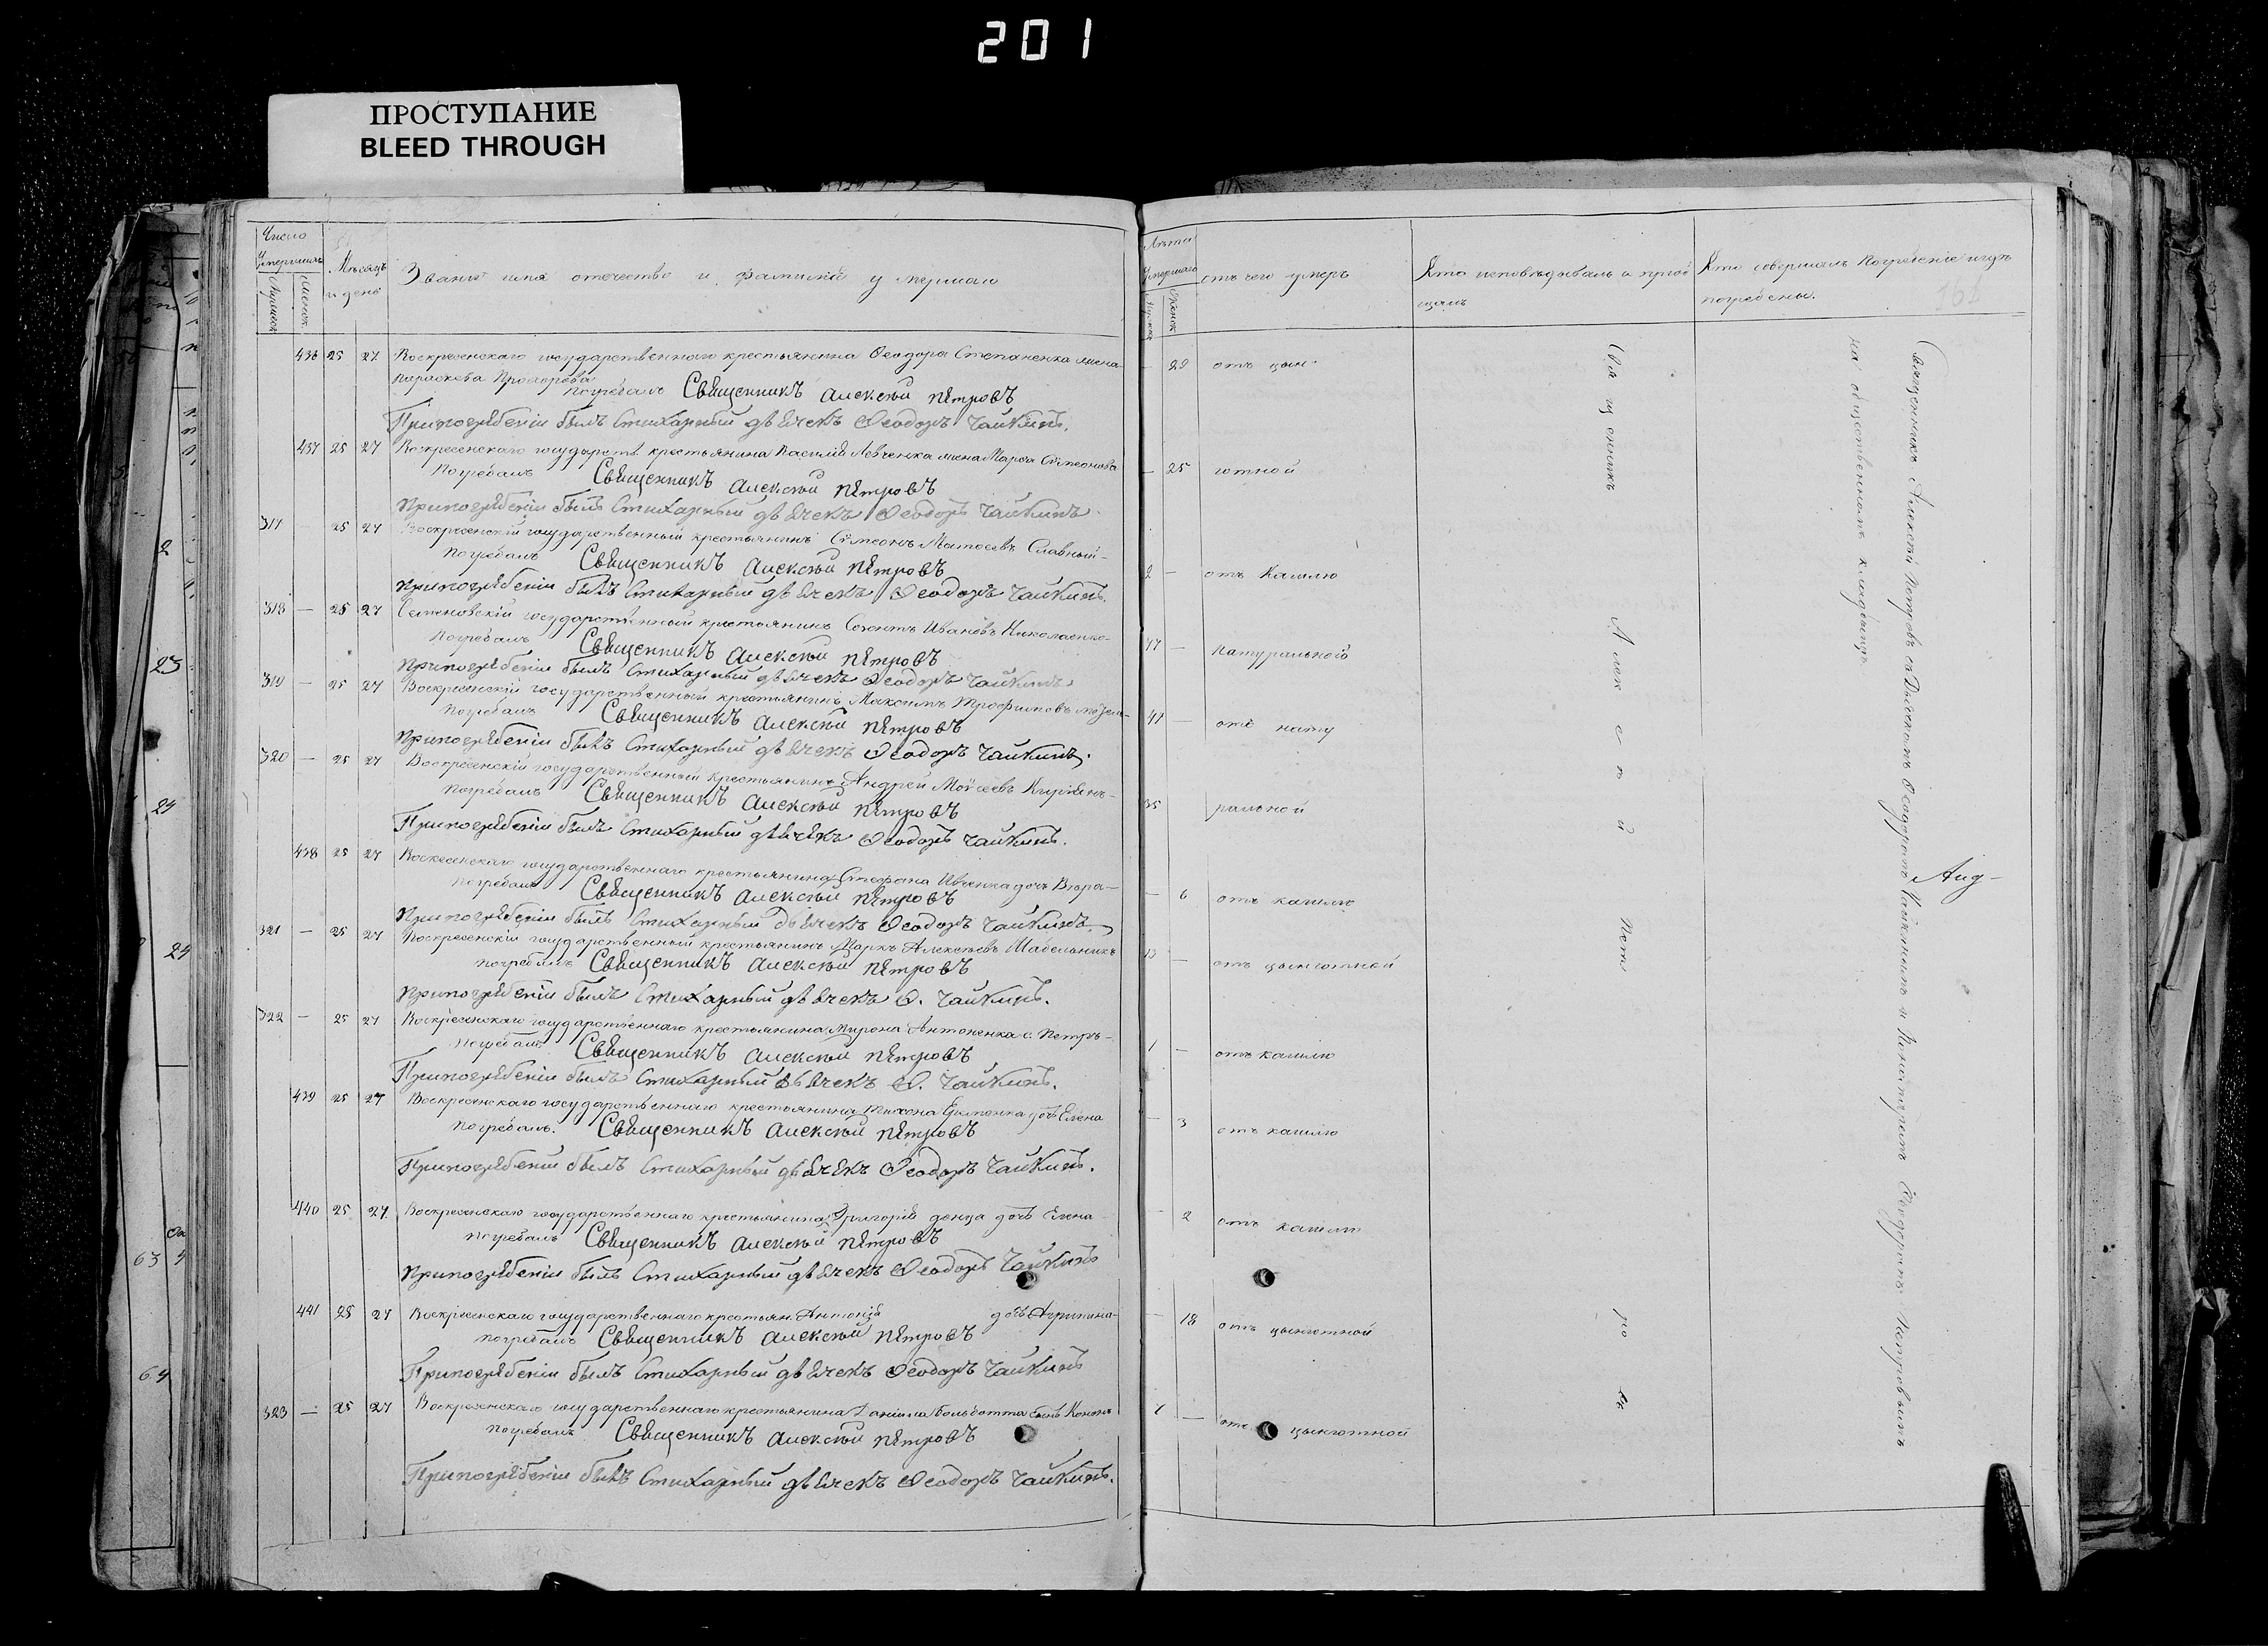 201
ПРОСТУПАНИЕ
BLEED THROUGH
Число
умершихъ
Мѣсяцъ
и день
Званіе имя отечество и фамилія умершаго
436 25 27 Воскресенскаго государственнаго крестьянина Ѳеодора Степаненка жена
Параскева Прохорова
Погребалъ Священникъ Алексѣй Петровъ
При погребеніи былъ Стихарный дьячекъ Ѳеодоръ Чайкинъ.
437 25 27 Воскресенскаго государств крестьянина Василія Левченка жена Марѳа Сѵмеонова
Погребалъ Священникъ Алексѣй Петровъ
При погребеніи былъ Стихарный дьячекъ Ѳеодоръ Чайкинъ.
317 — 25 27 Воскресенскій государственный крестьянинъ Сѵмеонъ Матѳеевъ Славный
Погребалъ Священникъ Алексѣй Петровъ
При погребеніи былъ Стихарный дьячекъ Ѳеодоръ Чайкинъ.
318 — 25 27 Семеновскій государственный крестьянинъ Ивановъ Николаенко
Погребалъ Священникъ Алексѣй Петровъ
При погребеніи былъ Стихарный дьячекъ Ѳеодоръ Чайкинъ
319 — 25 27 Воскресенскій государственный крестьянинъ Максимъ Трофимовъ
Погребалъ Священникъ Алексѣй Петровъ
При погребеніи былъ Стихарный дьячекъ Ѳеодоръ Чайкинъ.
320 — 25 27 Воскресенскій государственный крестьянинъ Андрей Моѵсеевъ
Погребалъ Священникъ Алексѣй Петровъ
При погребеніи былъ Стихарный дьячекъ Ѳеодоръ Чайкинъ.
438 25 27 Воскресенскаго государственнаго крестьянина Стефана Ивченка дочь
Погребалъ Священникъ Алексѣй Петровъ
При погребеніи былъ Стихарный дьячекъ Ѳеодоръ Чайкинъ.
321 — 25 27 Воскресенскій государственный крестьянинъ Маркъ Алексѣевъ Шабельникъ
Погребалъ Священникъ Алексѣй Петровъ
При погребеніи былъ Стихарный дьячекъ Ѳ. Чайкинъ.
322 — 25 27 Воскресенскаго государственнаго крестьянина Мирона Антоненка с. Петръ
Погребалъ Священникъ Алексѣй Петровъ
При погребеніи былъ Стихарный дьячекъ Ѳ. Чайкинъ.
439 25 27 Воскресенскаго государственнаго крестьянина Тихона дочь Елена
Погребалъ. Священникъ Алексѣй Петровъ
При погребеніи былъ Стихарный дьячекъ Ѳеодоръ Чайкинъ.
440 25 27 Воскресенскаго государственнаго крестьянина Григорія донца дочь Елена
Погребалъ Священникъ Алексѣй Петровъ
При погребеніи былъ Стихарный дьячекъ Ѳеодоръ Чайкинъ
441 25 27 Воскресенскаго государственнаго крестьян. Антонія дочь Агрипина
Погребалъ Священникъ Алексѣй Петровъ
При погребеніи былъ Стихарный дьячекъ Ѳеодоръ Чайкинъ
323 — 25 27 Воскресенскаго государственнаго крестьянина Даніила сынъ Кононъ
Погребалъ Священникъ Алексѣй Петровъ
При погребеніи былъ Стихарный дьячекъ Ѳеодоръ Чайкинъ.
Лѣта
умершаго
отъ чего умеръ
Кто исповѣдывалъ и пріоб
щалъ
Кто совершалъ погребеніе и гдѣ
погребены.
— 29 отъ цын
— 25 готной
2 — отъ кашлю
77 — натуральной
47 — отъ нату
35 ральной
— 6 отъ кашлю
— отъ цынготной
1 — отъ кашлю
— 3 отъ кашлю
— 2 отъ кашлю
— 18 отъ цынготной
1 — отъ цынготной
Священникъ Алексѣй Петровъ
Священникъ Алексѣй Петровъ съ Дьячкомъ Ѳеодоромъ Чайкинымъ и Пономаремъ Ѳеодоромъ Петровымъ
на общественномъ кладбищѣ